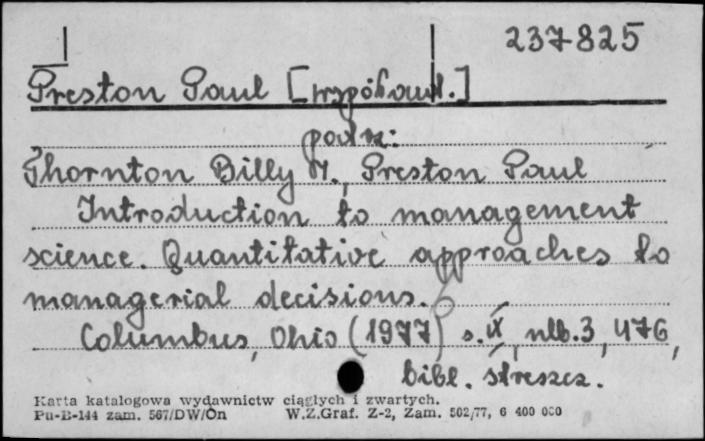 237825
Preston Paul [współaut.]
podn:
Thornton Billy M., Preston Paul
Introduction to management
science. Quantitative approaches to
managerial decisions.
Columbus, Ohio (1977) s. IX, nlb. 3, 476,
bibl. streszcz.
Karta katalogowa wydawnictw ciągłych i zwartych.
Pu-B-144 zam. 567/DW/Ón W.Z.Graf. Z-2, Zam. 502/77, 6 400 000